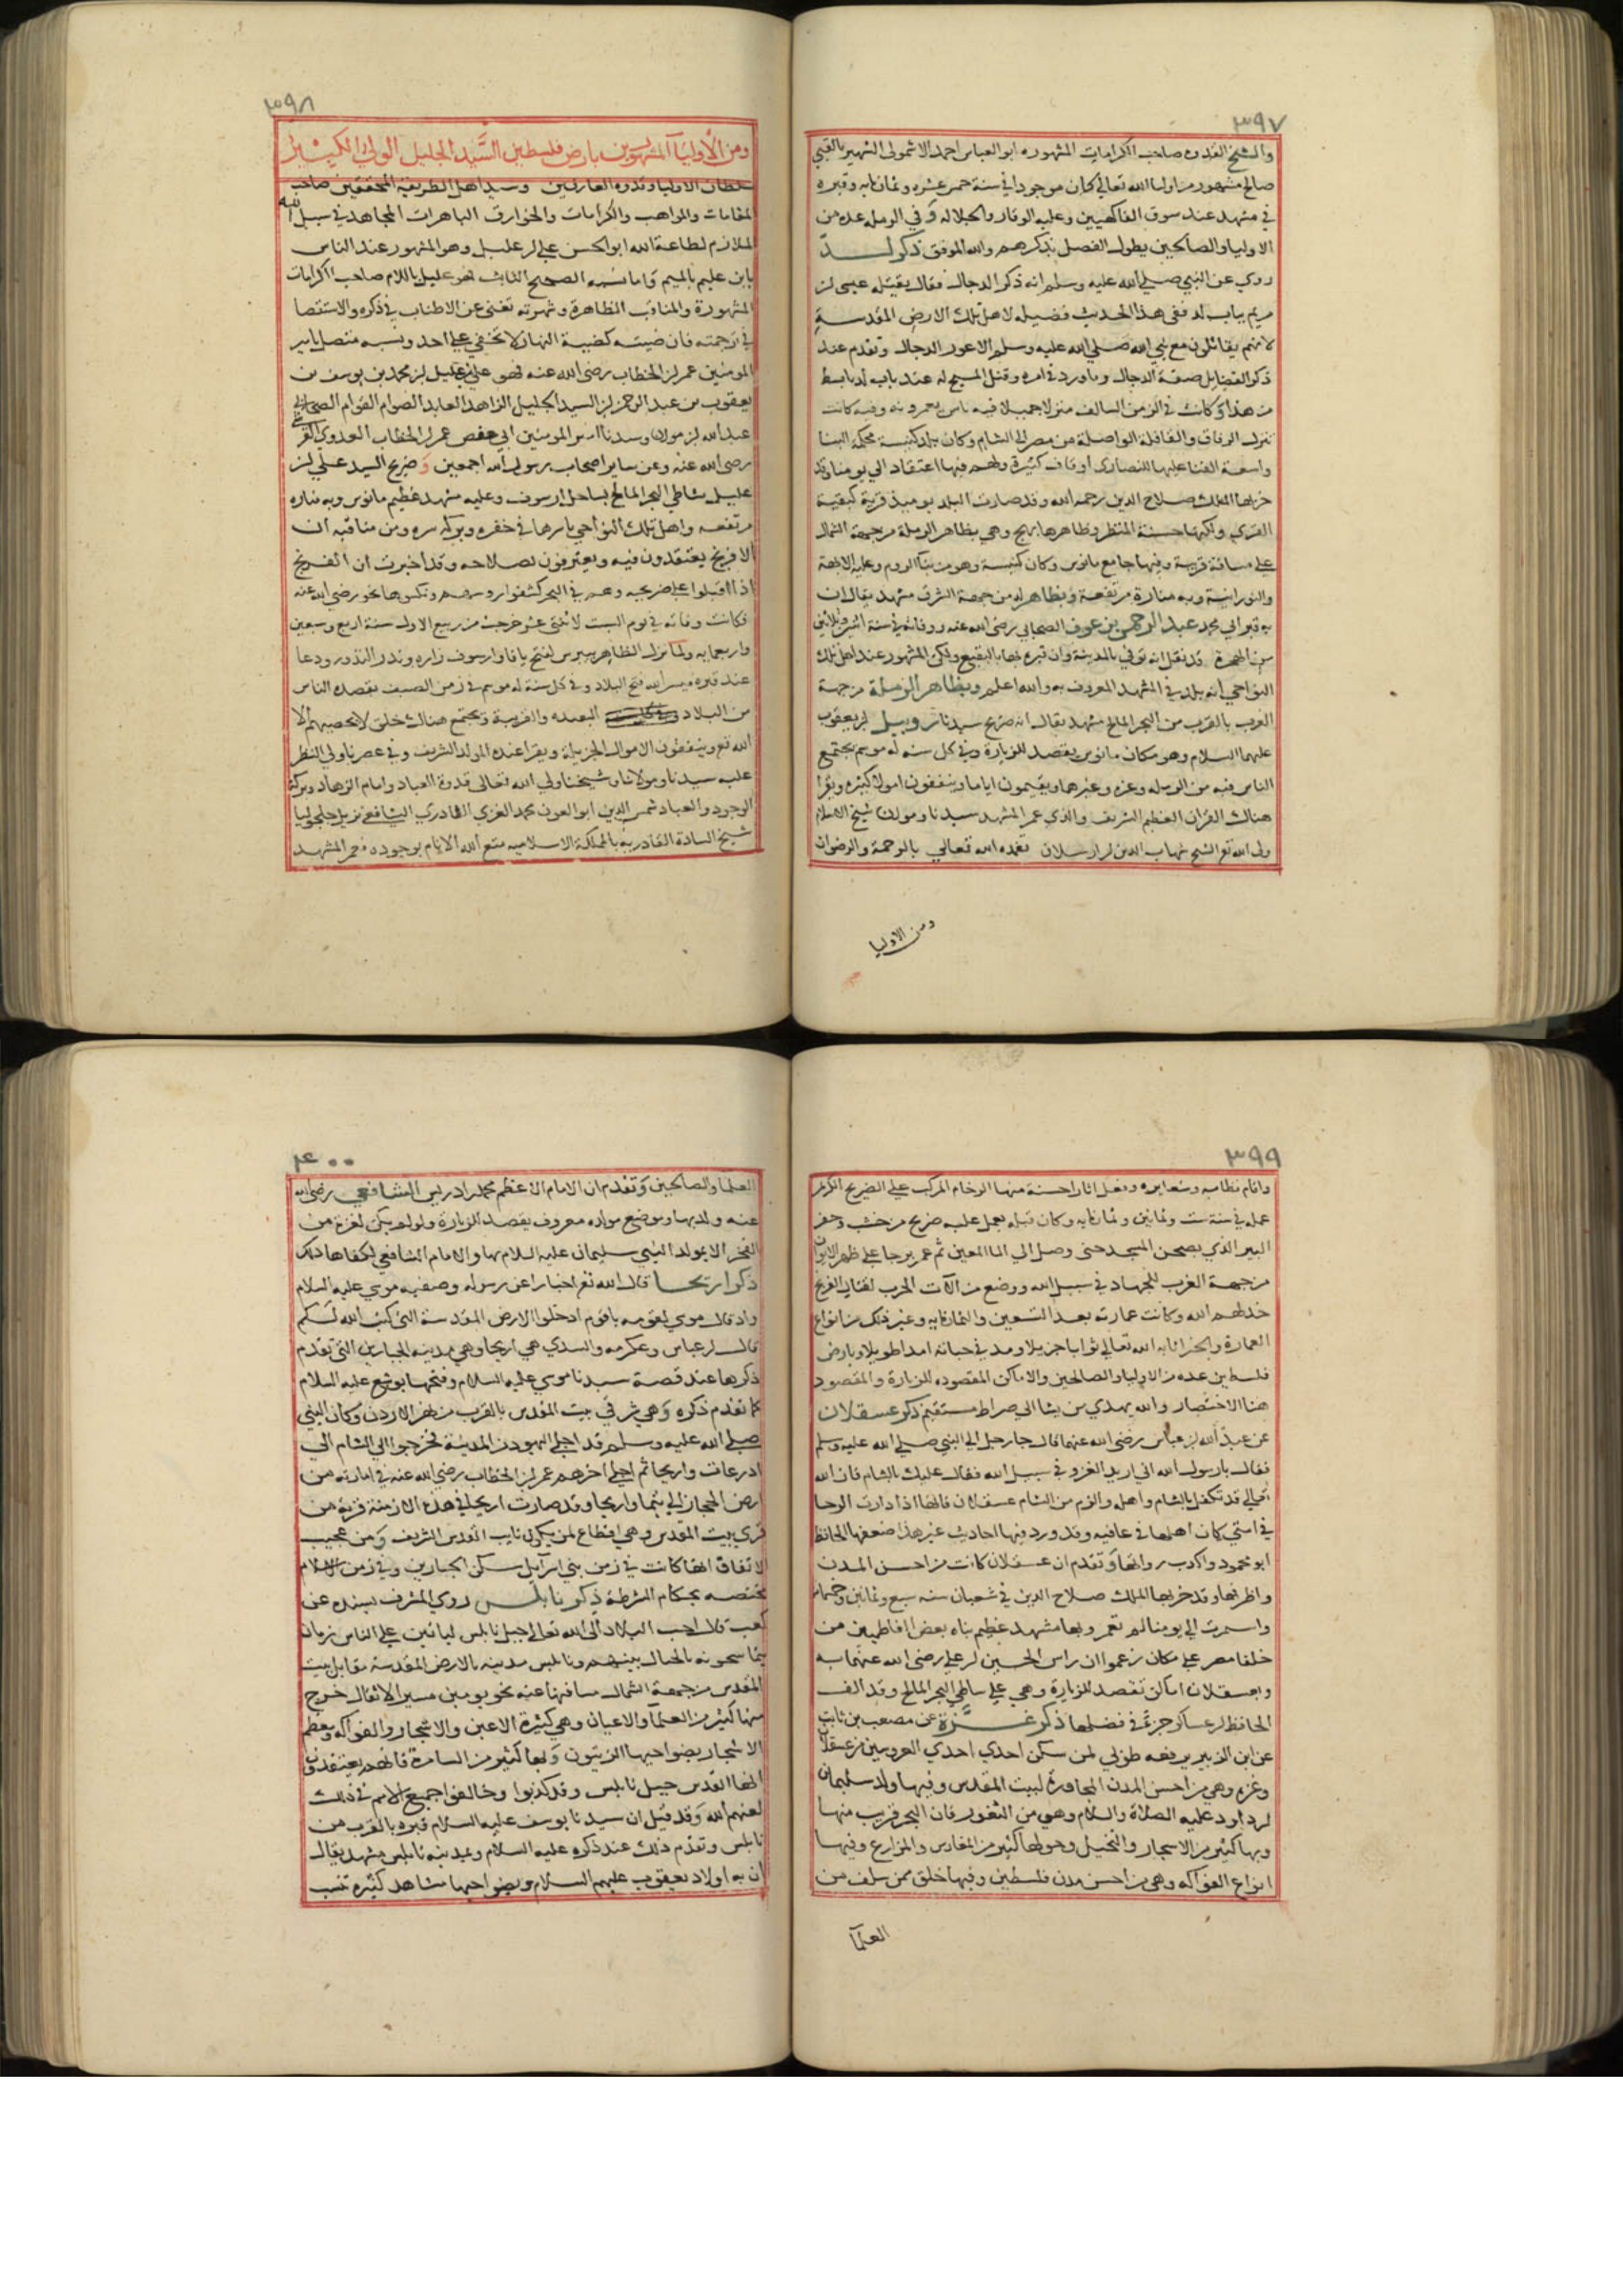 ٣٩٧
والشيخ القدوه صاحب الكرامات المشهوره ابو العباس احمد الاشمولى الشهير بالقبي
صالح مشهور من اوليا الله تعالى كان موجودا في سنة خمس عشره وثمانمايه وقبره
في مشهد عند سوق الفاكهيين وعليه الوقار والجلاله وفي الرمله عده من
الاوليا والصالحين يطول الفصل بذكرهم والله الموفق ذكر لد
روي عن النبي صلي الله عليه وسلم انه ذكر الدجال فقال يقتله عيسى ابن
مريم بباب لد ففى هذا الحديث فضيله لاهل تلك الارض المقدسة
لانهم يقاتلون مع نبي الله صلي الله عليه وسلم الاعور الدجال وتقدم عند
ذكر الفضايل صفة الدجال وما ورد في امره وقتل المسيح له عند باب لد بابسط
من هذا وكانت في الزمن السالف منزلا جميلا فيه ناس يعمرونه وفيه كانت
تنزل الرفاق والقافلة الواصلة من مصر الى الشام وكان بلد كنيسة محكمة البنا
واسعة الفنا عليها للنصارى اوقاف كثيرة ولهم فيها اعتقاد الي يومنا وقد
خربها الملك صلاح الدين رحمه الله وقد صارت البلد يوميذ قرية كبقية
القري ولكنها حسنة المنظر وظاهرها بهج وهي بظاهر الرملة من جهة الشمال
علي مسافة قريبة وفيها جامع مانوس وكان كنيسة وهو من بنا الروم وعليه الابهة
والنورانية وبه منارة مرتفعة وبظاهر لد من جهة الشرق مشهد يقال ان
به قبر ابي محمد عبد الرحمن بن عوف الصحابي رضي الله عنه ووفاته في سنة اثنين وثلاثين
من الهجرة وقد نقل انه توفي بالمدينة وان قبره بها بالبقيع ولكن المشهور عند اهل تلك
النواحي انه بلد في المشهد المعروف به والله اعلم وبظاهر الرملة من جهة
الغرب بالقرب من البحر المالح مشهد يقال انه ضريح سيدنا روبيل ابن يعقوب
عليهما السلام وهو مكان مانوس يقصد للزيارة وفي كل سنه له موسم يجتمع
الناس فيه من الرمله وغزه وغيرها ويقيمون اياما وينفقون اموال كثيره ويقرا
هناك القران العظيم الشريف والذي عمر المشهد سيدنا ومولانا شيخ الاسلام
ولى الله تع الشيخ شهاب الدين ابن ارسلان تغمده الله تعالي بالرحمة والرضوان
ومن الاوليا
٣٩٨
ومن الأوليآ المشهورين بارض فلسطين السَّيد الجليل الولي الكبير
سلطان الاوليا وقدوه العارفين وسيد اهل الطريقة المحققين صاحب
المقامات والمواهب والكرامات والخوارق الباهرات المجاهد في سبيل الله
الملازم لطاعة الله ابو الحسن علي ابن عليل وهو المشهور عند الناس
بابن عليم بالميم واما نسبه الصحيح الثابت فهو عليل باللام صاحب الكرامات
المشهورة والمناقب الظاهرة وشهرته تغنى عن الاطناب في ذكره والاستقصا
في ترجمته فان صيته كضية النهار لا تخفي علي احد ونسبه متصل بامير
المومنين عمر ابن الخطاب رضي الله عنه فهو علي بن عليل ابن محمد بن يوسف بن
يعقوب بن عبد الرحمن ابن السيد الجليل الزاهد العابد الصوام القوام الصحابي
عبد الله ابن مولانا وسيدنا امير المومنين ابي حفص عمر ابن الخطاب العدوي القرشي
رضي الله عنه وعن ساير اصحاب رسول الله اجمعين وضريح السيد علي ابن
عليل بشاطي البحر المالح بساحل ارسوف وعليه مشهد عظيم مانوس وبه مناره
مرتفعه واهل تلك النواحي باسرها في خفره وبركة سره ومن مناقبه ان
الافرنج يعتقدون فيه ويعترفون بصلاحه وقد اخبرت ان الفرنج
اذا اقبلوا علي ضريحه وهم في البحر كشفوا روسهم ونكسوها نحوه رضي الله عنه
وكانت وفاته في يوم السبت لاثنى عشر خرجت من ربيع الاول سنة اربع وسبعين
واربعمايه ولما نزل الظاهر بيبرس لفتح يافا وارسوف زاره ونذر النذور ودعا
عند قبره فيسر الله فتح البلاد وفي كل سنة له موسم في زمن الصيف يقصده الناس
من البلاد البعيده والقريبة ويجتمع هناك خلق لا يحصيهم الا
الله تع وينفقون الاموال الجزيلة ويقرا عنده المولد الشريف وفي عصرنا ولي النظر
عليه سيدنا ومولانا وشيخنا ولي الله تعالى قدوة العباد وامام الزهاد وبركة
الوجود والعباد شمس الدين ابو العون محمد الغزي القادري الشافعي نزيل جلجوليا
شيخ السادة القادريه بالمملكة الاسلاميه متع الله الانام بوجوده فعمر المشهد
٣٩٩
واقام نظامه وشعايره وفعل اثارا حسنة منها الرخام المركب علي الضريح الكريم
عمله في سنة ست وثمانين وثمانمايه وكان قبله يعمل عليه ضريح من خشب وحفر
البير الذي بصحن المسجد حتى وصل الي الما المعين ثم عمر برجا علي ظهر الايوان
من جهة الغرب للجهاد في سبيل الله ووضع من الات الحرب لقتال الفرنج
خذلهم الله وكانت عمارته بعد التسعين والثمانمايه وغير ذلك من انواع
العمارة والخير اثابه الله تعالي ثوابا جزيلا ومد في حياته امدا طويلا وبارض
فلسطين عده من الاوليا والصالحين والاماكن المقصوده للزيارة والمقصود
هنا الاختصار والله يهدي من يشا الي صراط مستقيم ذكر عسقلان
عن عبد الله ابن عباس رضي الله عنهما قال جا رجل الى النبي صلي الله عليه وسلم
فقال يا رسول الله اني اريد الغزو في سبيل الله فقال عليك بالشام فان الله
تعالي قد تكفل بالشام واهله والزم من الشام عسقلان فانها اذا دارت الرحا
في امتي كان اهلها في عافيه وقد ورد فيها احاديث غير هذا ضعفها الحافظ
ابو محمود واكذب رواتها وتقدم ان عسقلان كانت من احسن المدن
واظرفها وقد خربها الملك صلاح الدين في شعبان سنه سبع وثمانين وخمسمايه
واستمرت الي يومنا لم تعمر وبها مشهد عظيم بناه بعض الفاطميين من
خلفا مصر علي مكان زعموا ان راس الحسين ابن علي رضي الله عنهما به
وبعسقلان اماكن تقصد للزيارة وهي علي شاطي البحر المالح وقد الف
الحافظ ابن عساكر جزءً في فضلها ذكر غزة عن مصعب بن ثابت
عن ابن الزبير يرفعه طوبي لمن سكن احدى العروسين عسقلان
وغزه وهي من احسن المدن المجاورة لبيت المقدس وفيها ولد سليمان
ابن داود عليه الصلاة والسلام وهي من الثغور فان البحر قريب منها
وبها كثير من الاشجار والنخيل وحولها كثير من المغارس والمزارع وفيها
انواع الفواكه وهي من احسن مدن فلسطين وفيها خلق ممن سلف من
العلمآ
٤٠٠
العلما والصالحين وتقدم ان الامام الاعظم محمد بن ادريس الشافعي رضي الله
عنه ولد بها وموضع مولده معروف يقصد للزيارة ولو لم يكن لغزه من
الفخر الا بمولد النبي سليمان عليه السلام بها والامام الشافعي لكفاها ذلك
ذكر اريحا قال الله تع اخبارا عن رسوله وصفيه موسي عليه السلام
واذ قال موسي لقومه يا قوم ادخلوا الارض المقدسة التي كتب الله لكم
قال ابن عباس وعكرمه والسدي هي اريحا وهي مدينه الجبارين التي تقدم
ذكرها عند قصة سيدنا موسي عليه السلام وفتحها يوشع عليه السلام
كما تقدم ذكره وهي شرقي بيت المقدس بالقرب من نهر الاردن وكان النبي
صلي الله عليه وسلم قد اجلي اليهود من المدينة فخرجوا الي الشام الي
اذرعات واريحا ثم اجلي اخرهم عمر ابن الخطاب رضي الله عنه في امارته من
ارض الحجاز الي تيما واريحا وقد صارت اريحا في هذه الازمنة قرية من
قرى بيت المقدس وهي اقطاع لمن يكون نايب القدس الشريف ومن عجيب
الاتفاق انها كانت في زمن بني اسرآيل سكن الجبارين وفي زمن الاسلام
مختصه بحكام الشرطة ذكر نابلس روي المشرف بسنده عن
كعب قال احب البلاد الى الله تعالى جبل نابلس لياتين علي الناس زمان
يتماسحونه بالحبال بينهم ونابلس مدينه بالارض المقدسة مقابل بيت
المقدس من جهة الشمال مسافتها عنه نحو يومين بسير الاثقال خرج
منها كثير من العلمآ والاعيان وهي كثيرة الاعين والاشجار والفواكه ومعظم
الاشجار بضواحيها الزيتون وبها كثير من السامرة فانهم يعتقدون
انها القدس جبل نابلس وقد كذبوا وخالفوا جميع الامم في ذلك
لعنهم الله وقد قيل ان سيدنا يوسف عليه السلام قبره بالقرب من
نابلس وتقدم ذلك عند ذكره عليه السلام وبمدينه نابلس مشهد يقال
ان به اولاد يعقوب عليهم السلام وبضواحيها مشاهد كثيره تنسب